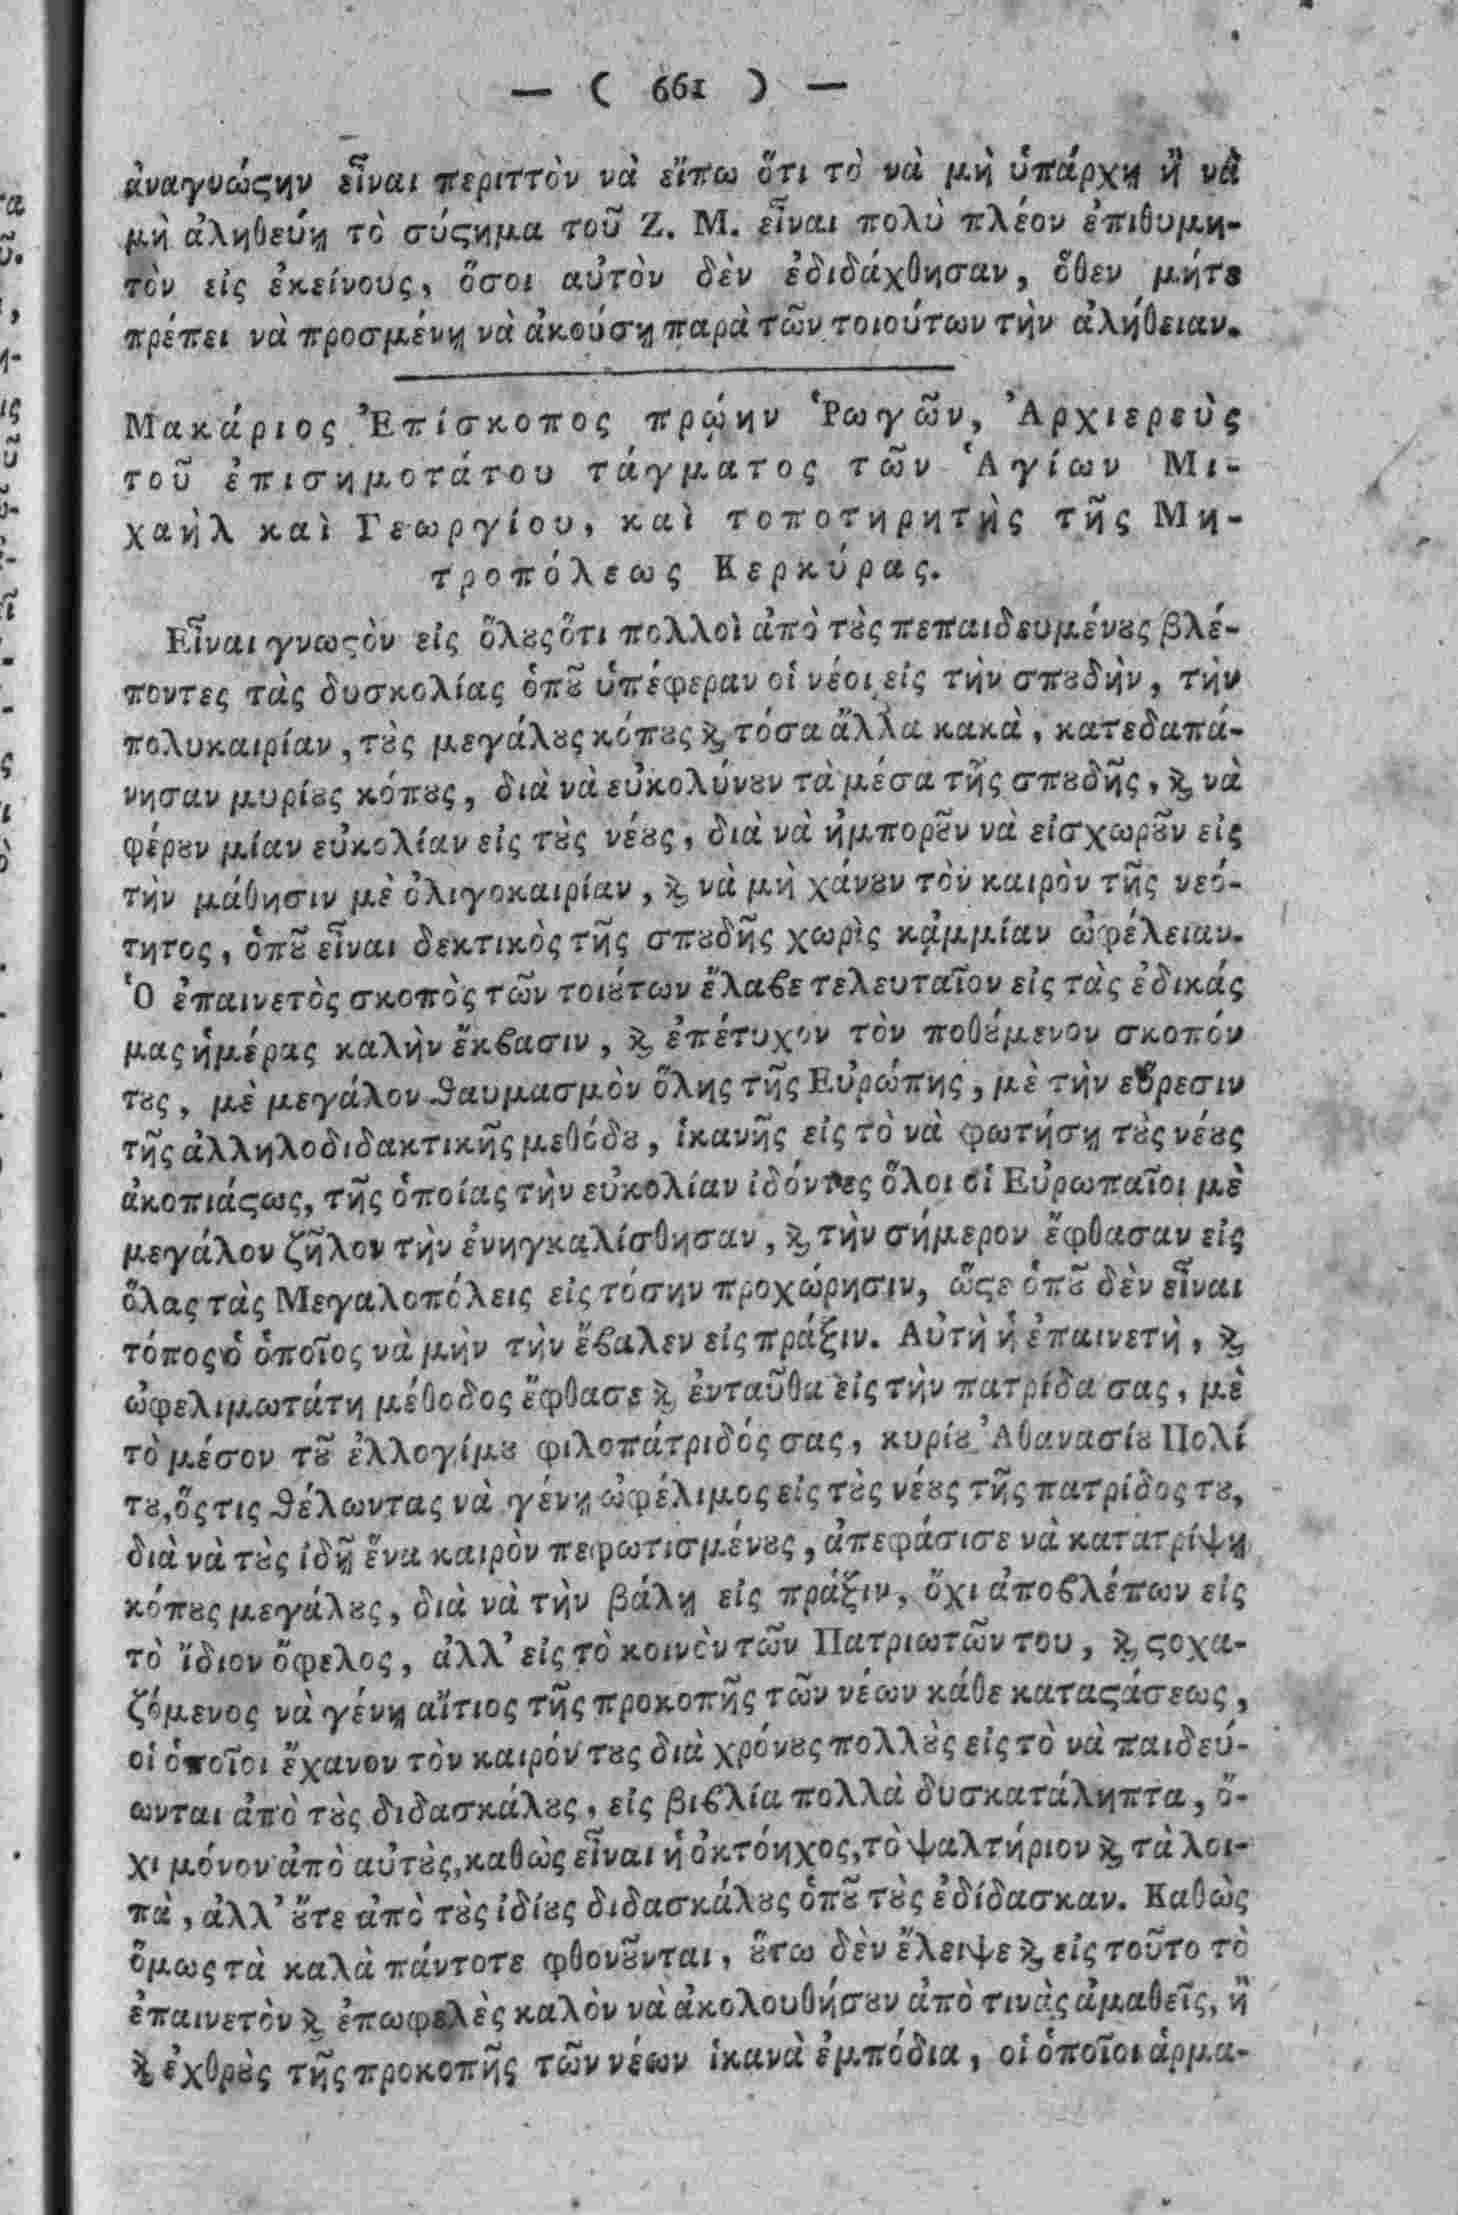 — ( 661 ) —
ἀναγνώϛην εἶναι περιττὸν νὰ εἴπω ὅτι τὸ νὰ μὴ ὑπάρχῃ ἢ νὰ
μὴ ἀληθεύῃ τὸ σύϛημα τοῦ Ζ. Μ. εἶναι πολὺ πλέον ἐπιθυμη-
τὸν εἰς ἐκείνους, ὅσοι αὐτὸν δὲν ἐδιδάχθησαν, ὅθεν μήτε
πρέπει νὰ προσμένῃ νὰ ἀκούσῃ παρὰ τῶν τοιούτων τὴν ἀλήθειαν.
Μακάριος Ἐπίσκοπος πρῴην Ῥωγῶν, Ἀρχιερεὺς
τοῦ ἐπισημοτάτου τάγματος τῶν Ἁγίων Μι-
χαὴλ καὶ Γεωργίου, καὶ τοποτηρητὴς τῆς Μη-
τροπόλεως Κερκύρας.
Εἶναι γνωϛὸν εἰς ὅλȣς ὅτι πολλοὶ ἀπὸ τȣ̀ς πεπαιδευμένȣς βλέ-
ποντες τὰς δυσκολίας ὁπȣ͂ ὑπέφεραν οἱ νέοι εἰς τὴν σπȣδὴν, τὴν
πολυκαιρίαν, τȣ̀ς μεγάλȣς κόπȣς ϗ τόσα ἄλλα κακὰ, κατεδαπά-
νησαν μυρίȣς κόπȣς, διὰ νὰ εὐκολύνȣν τὰ μέσα τῆς σπȣδῆς, ϗ νὰ
φέρȣν μίαν εὐκολίαν εἰς τȣ̀ς νέȣς, διὰ νὰ ἠμπορȣ͂ν νὰ εἰσχωρȣ͂ν εἰς
τὴν μάθησιν μὲ ὀλιγοκαιρίαν, ϗ νὰ μὴ χάνȣν τὸν καιρὸν τῆς νεό-
τητος, ὁπȣ͂ εἶναι δεκτικὸς τῆς σπȣδῆς χωρὶς κᾀμμίαν ὠφέλειαν.
Ὁ ἐπαινετὸς σκοπὸς τῶν τοιȣ́των ἔλαϐε τελευταῖον εἰς τὰς ἐδικάς
μας ἡμέρας καλὴν ἔκϐασιν, ϗ ἐπέτυχον τὸν ποθȣ́μενον σκοπόν
τȣς, μὲ μεγάλον ϑαυμασμὸν ὅλης τῆς Εὐρώπης, μὲ τὴν εὕρεσιν
τῆς ἀλληλοδιδακτικῆς μεθόδȣ, ἱκανῆς εἰς τὸ νὰ φωτήσῃ τȣ̀ς νέȣς
ἀκοπιάϛως, τῆς ὁποίας τὴν εὐκολίαν ἰδόντες ὅλοι οἱ Εὐρωπαῖοι μὲ
μεγάλον ζῆλον τὴν ἐνηγκαλίσθησαν, ϗ τὴν σήμερον ἔφθασαν εἰς
ὅλας τὰς Μεγαλοπόλεις εἰς τόσην προχώρησιν, ὥϛε ὁπȣ͂ δὲν εἶναι
τόπος ὁ ὁποῖος νὰ μὴν τὴν ἔϐαλεν εἰς πράξιν. Αὐτὴ ἡ ἐπαινετὴ, ϗ
ὠφελιμωτάτη μέθοδος ἔφθασε ϗ ἐνταῦθα εἰς τὴν πατρίδα σας, μὲ
τὸ μέσον τȣ͂ ἐλλογίμȣ φιλοπάτριδός σας, κυρίȣ Ἀθανασίȣ Πολί
τȣ, ὅςτις ϑέλωντας νὰ γένῃ ὠφέλιμος εἰς τȣ̀ς νέȣς τῆς πατρίδος τȣ,
διὰ νὰ τȣ̀ς ἰδῇ ἕνα καιρὸν πεφωτισμένȣς, ἀπεφάσισε νὰ κατατρίψῃ
κόπȣς μεγάλȣς, διὰ νὰ τὴν βάλῃ εἰς πράξιν, ὄχι ἀποϐλέπων εἰς
τὸ ἴδιον ὄφελος, ἀλλ' εἰς τὸ κοινὸν τῶν Πατριωτῶν του, ϗ ϛοχα-
ζόμενος νὰ γένῃ αἴτιος τῆς προκοπῆς τῶν νέων κάθε καταϛάσεως,
οἱ ὁποῖοι ἔχανον τὸν καιρόν τȣς διὰ χρόνȣς πολλȣ̀ς εἰς τὸ νὰ παιδεύ-
ωνται ἀπὸ τȣ̀ς διδασκάλȣς, εἰς βιϐλία πολλὰ δυσκατάληπτα, ὄ-
χι μόνον ἀπὸ αὐτȣ̀ς, καθὼς εἶναι ἡ ὀκτόηχος, τὸ ψαλτήριον ϗ τὰ λοι-
πὰ, ἀλλ' ȣ̓́τε ἀπὸ τȣ̀ς ἰδίȣς διδασκάλȣς ὁπȣ͂ τȣ̀ς ἐδίδασκαν. Καθὼς
ὅμως τὰ καλὰ πάντοτε φθονȣ͂νται, ȣ̔́τω δὲν ἔλειψε ϗ εἰς τοῦτο τὸ
ἐπαινετὸν ϗ ἐπωφελὲς καλὸν νὰ ἀκολουθήσȣν ἀπὸ τινὰς ἀμαθεῖς, ἢ
ϗ ἐχθρȣ̀ς τῆς προκοπῆς τῶν νέων ἱκανὰ ἐμπόδια, οἱ ὁποῖοι ἁρμα-